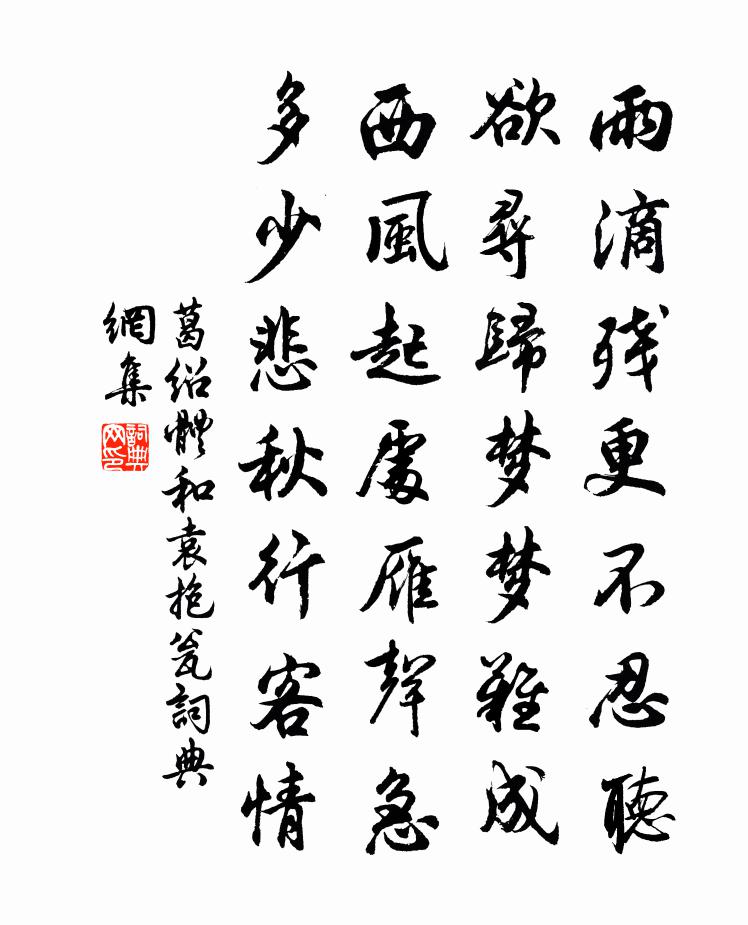 雨滴残更不忍聽
欲尋歸梦梦難成
西風起處雁聲急
多少悲秋行客情
葛绍體和袁抱瓮詞典
網集
詞典
网印